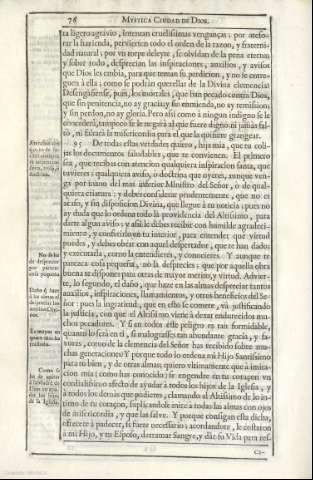 76 MYSTICA CIUDAD DE DIOS.
ta ligero agravio, intentan cruelissimas venganças: por ateso-
rar la hazienda, pervierten todo el orden de la razon, y fraterni-
dad natural: por vn torpe deleyte, se olvidan de la pena eterna;
y sobre todo, desprecian las inspiraciones, auxilios, y avisos
que Dios les embia, para que teman su perdicion, y no se convie-
guen à ella; como se podràn querellar de la Divina clemencia?
Desengañense, pues, los mortales, que han pecado contra Dios,
que sin penitencia, no ay gracia; y sin enmienda, no ay remission;
y sin perdon, no ay gloria. Pero assi como à ningun indigno se le
concederà, tampoco se le negarà al que fuere digno; ni jamàs fal-
tò, ni faltarà la misericordia para el que la quisiere grangear.
95 De todas estas verdades quiero, hija mia, que tu coli-
jas los documentos saludables, que te convienen. El primero
sea, que recibas con atencion qualquiera inspiracion santa, que
tuvieres: qualquiera aviso, ò doctrina que oyeres, aunque ven-
ga por mano del mas inferior Ministro del Señor, ò de qual-
quiera criatura: y debes considerar prudentemente, que no es
acaso, y sin disposicion Divina, que llegue à tu noticia; pues no
ay duda que lo ordena todo la providencia del Altissimo, para
darte algun aviso: y assi le debes recibir con humilde agradeci-
miento, y conferirlo en tu interior, para entender que virtud
puedes, y debes obrar con aquel despertador, que te han dado;
y executarla, como la entendieres, y conocieres. Y aunque te
parezca cosa pequeña, no la desprecies: que por aquella obra
buena te dispones para otras de mayor merito, y virtud. Advier-
te, lo segundo, el daño, que haze en las almas despreciar tantos
auxilios, inspiraciones, llamamientos, y otros beneficios del Se-
ñor: pues la ingratitud, que en esto se comete, và justificando
la justicia, con que el Altissimo viene à dexar endurecidos mu-
chos pecadores. Y si en todos este peligro es tan formidable,
quanto lo serà en ti, si malograsses tan abundante gracia, y fa-
vores, como de la clemencia del Señor has recibido sobre mu-
chas generaciones? Y porque todo lo ordena mi Hijo Santissimo
para tu bien, y de otras almas; quiero vltimamente que à imita-
cion mia (como has conocido) se engendre en tu coraçon vn
cordialissimo afecto de ayudar à todos los hijos de la Iglesia, y
à todos los demàs que pudieres, clamando al Altissimo de lo in-
timo de tu coraçon, suplicandole mire à todas las almas con ojos
de misericordia, y que las salve. Y porque consigan esta dicha,
ofrecete à padecer, si fuere necessario; acordandote, le costaron
à mi Hijo, y tu Esposo, derramar Sangre, y dàr su Vida para res-
ca-